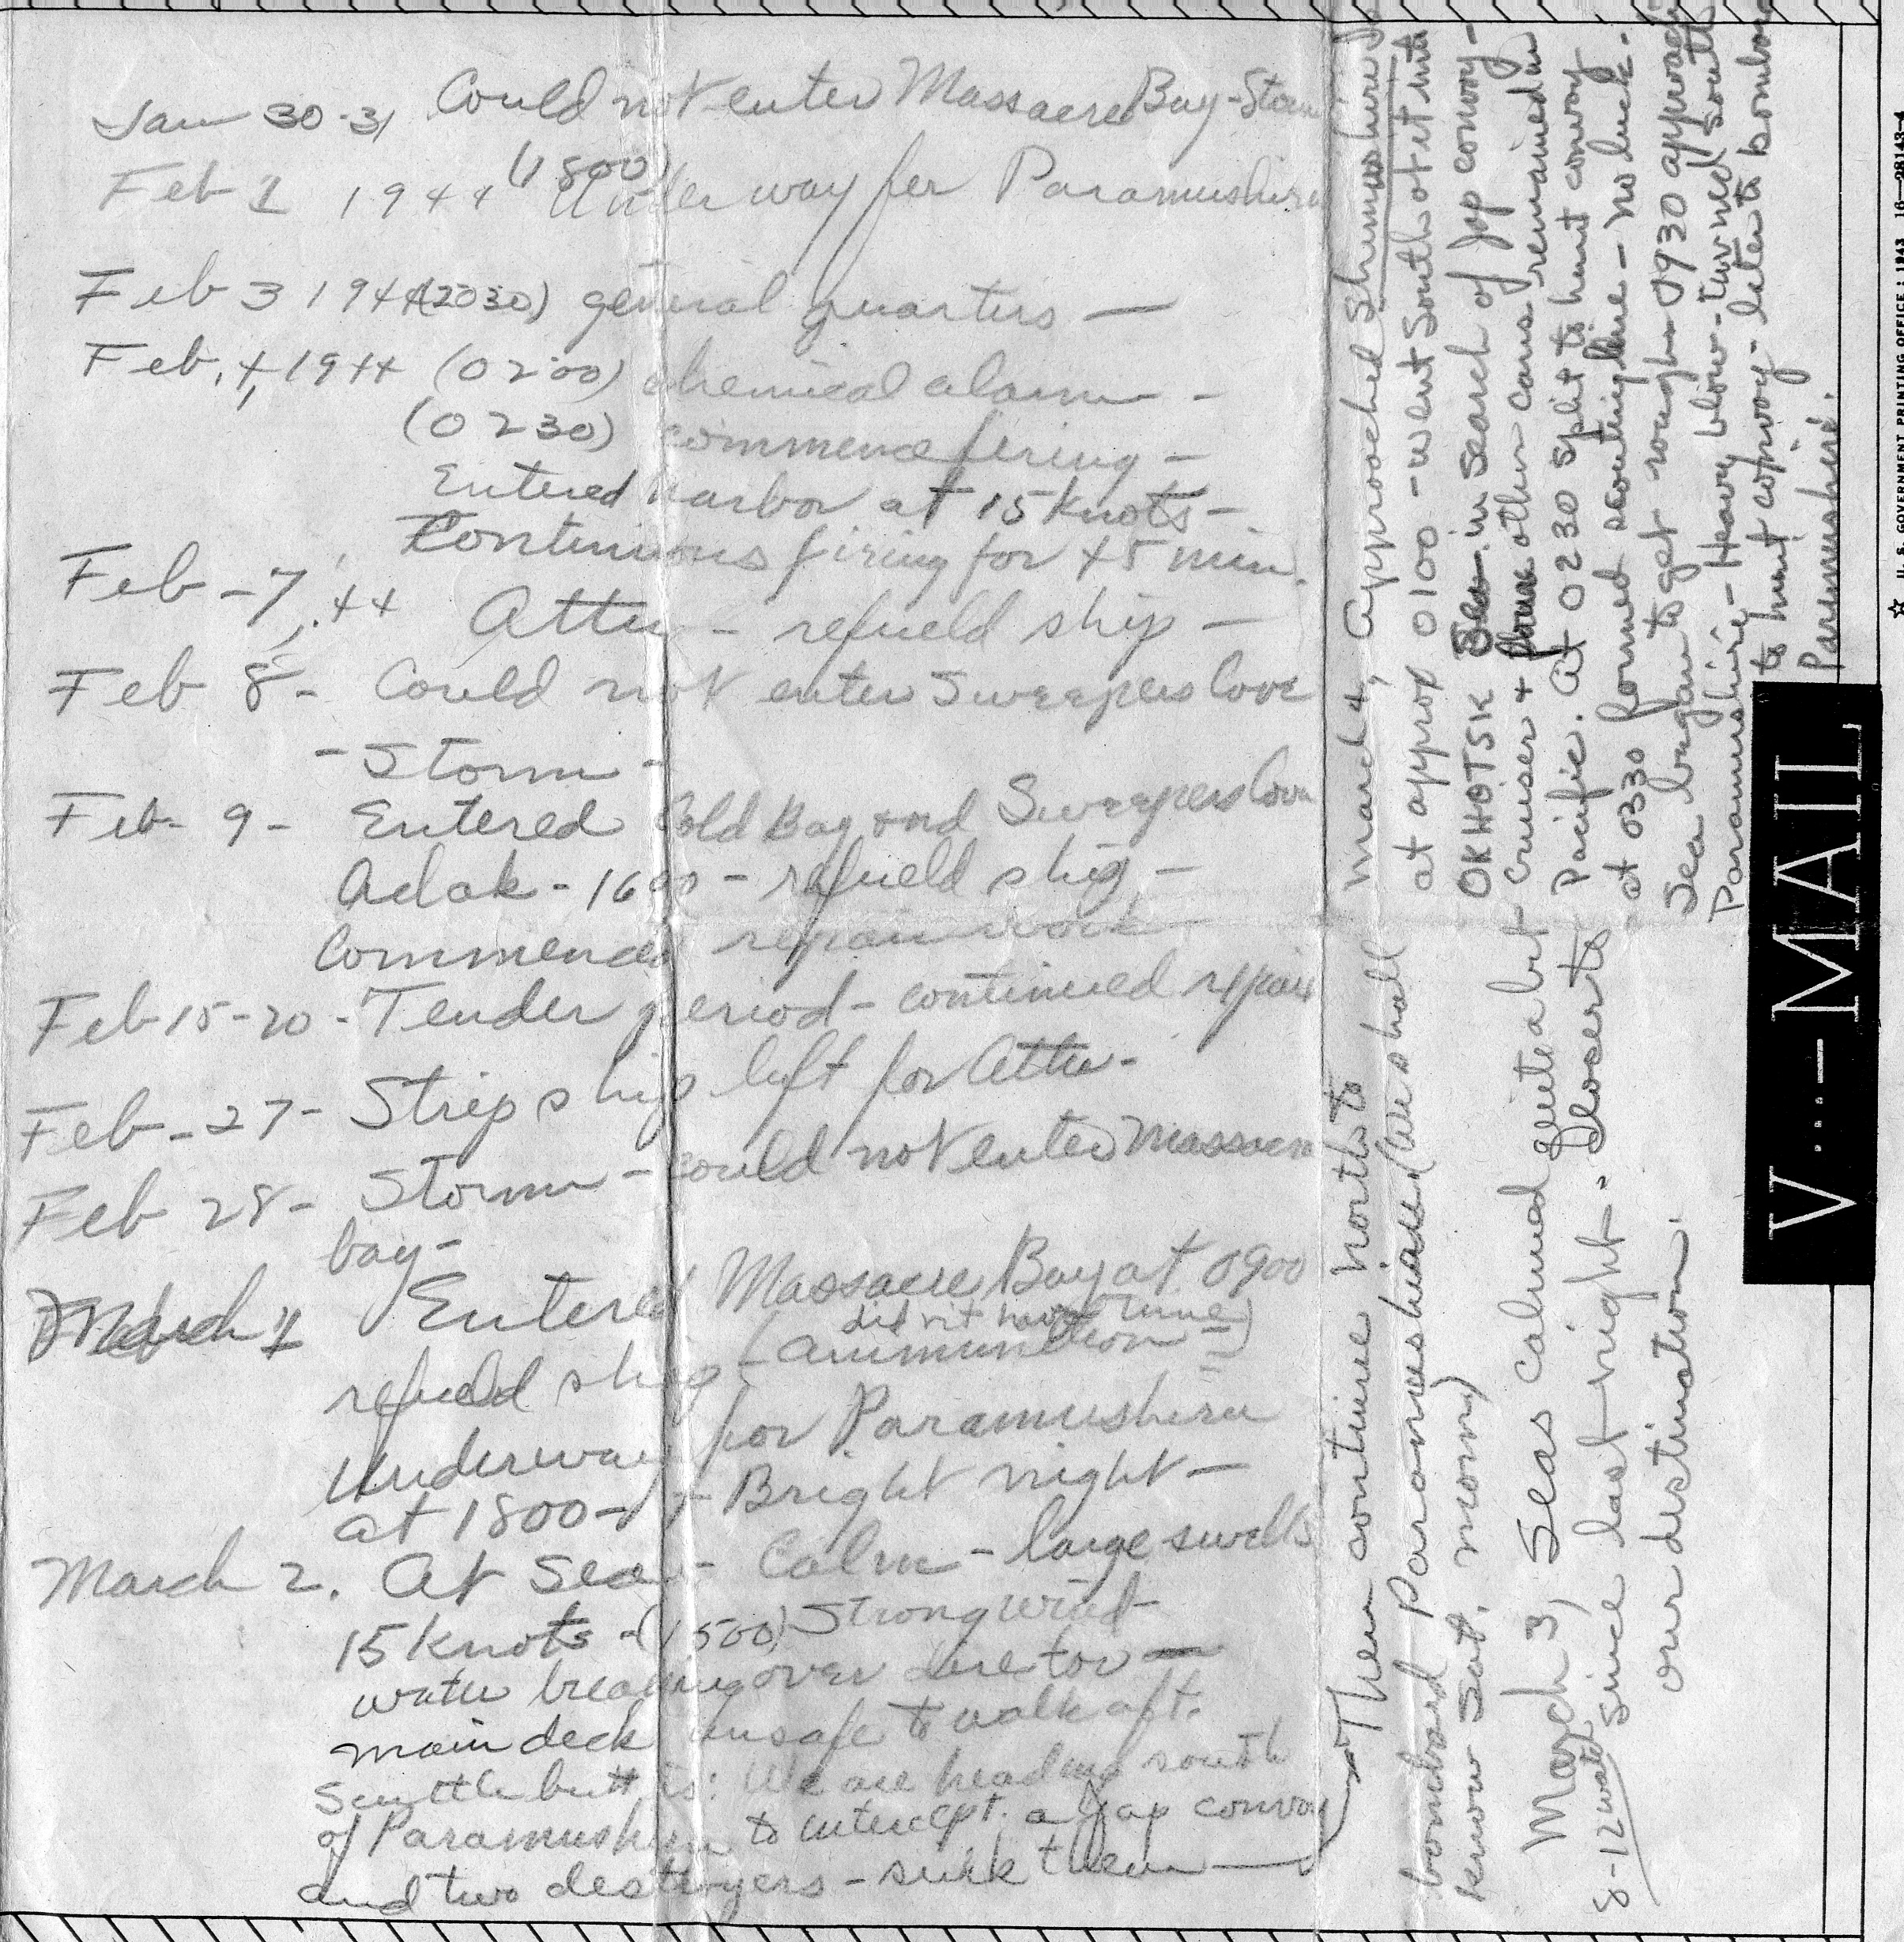 Jan 30-31 Could not enter Massacre Bay - Storm
(1800)
Feb 1 1944 Under way for Paramushiru
Feb 3 1944 (2030) general quarters —
Feb. 4, 1944 (0200) chemical alarm -
(0230) commence firing -
Entered harbor at 15 knots -
Continuous firing for 45 min.
Feb - 7, 44 Attu - refueld ship -
Feb 8 - Could not enter Sweepers Cove
- Storm -
Feb - 9 - Entered Cold Bay and Sweepers Cove
Adak - 1600 - refueld ship -
Commenced repair work
Feb 15-20 - Tender period - continued repair
Feb - 27 - Strip ship left for Attu -
Feb 28 - Storm - could not enter Massacre
bay -
March 1 Entered Massacre Bay at 0900
did n't have time
refueld ship - (ammunition -)
Underway for Paramushiru
at 1800 - Bright night -
March 2. At Sea - Calm - large swells
15 knots - (1500) Strong wind -
water breaking over director —
main deck unsafe to walk aft.
Scuttle butt is: We are heading south
of Paramushiru to intercept a Jap convoy
and two destroyers - sink them —
Then continue north to
bombard Paramushiru (we shall
know Sat. morn)
March 3, Seas calmed quite a bit
8-12 watch since last night - Closer to
our destination.
March 4, approached Shimushiru
at approx 0100 - went South of it into
OKHOTSK Sea in search of Jap convoy -
cruiser + four other cans remained in
Pacific. At 0230 split to hunt convoy
at 0330 formed scouting line - no luck -
Sea began to get rough - 0930 approach
Paramushiru - Heavy blow - turned south
to hunt convoy - later to bombard
Paramushiru.
V···—MAIL
☆ U. S. GOVERNMENT PRINTING OFFICE : 1943 16—28143-4